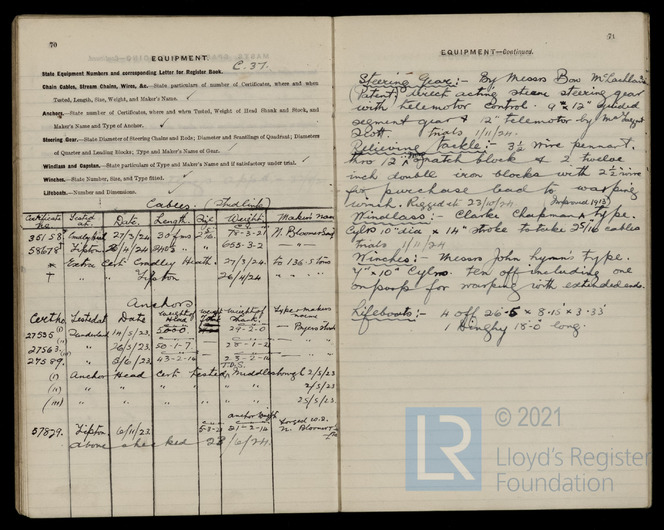 70
EQUIPMENT.
C.37.
State Equipment Numbers and corresponding Letter for Register Book.
Chain Cables, Stream Chains, Wires, &c.—State particulars of number of Certificates, where and when
Tested, Length, Size, Weight, and Maker's Name. ✓
Anchors.—State number of Certificates, where and when Tested, Weight of Head Shank and Stock, and
Maker's Name and Type of Anchor. ✓
Steering Gear.—State Diameter of Steering Chains and Rods; Diameter and Scantlings of Quadrant; Diameters
of Quarter and Leading Blocks; Type and Maker's Name of Gear. ✓
Windlass and Capstan.—State particulars of Type and Maker's Name and if satisfactory under trial. ✓
Winches.—State Number, Size, and Type fitted. ✓
Lifeboats.—Number and Dimensions.
Cables. (Studlink)
Certificate No. Tested at. Date. Length. Size Weight. Makers name
35158 27/2/24 30 fms 78-3-21 N. Bloomer
58678 Tipton 655-3-2 "
* Extra Cert Cradley Heath. 27/3/24 to 136.5 tons
† " " Tipton 26/4/24 " " "
Anchors
Cert No. Tested at Date Weight of Head Weight of Shank. Type & makers name
27535 (i) Sunderland 14/5/23. 50-0-0 29-2-0 Byers
27563 (ii) " 26/3/23. 50-1-7 — 28-1-21
27589 (iii) " 5/6/23. 43-2-14 — 23-2-14
(i) Anchor Head Cert Tested Middlesbrough 2/3/23
(ii) " " " " " 2/3/23
(iii) " " " " " 25/5/23.
57829. Tipton 6/11/23. 5-3-21 21-2-14 Forged N. Bloomer
above checked 23/6/24.
71
EQUIPMENT—Continued.
Steering Gear:- By Messrs Bow McLachlan's
(Patent) direct acting steam steering gear
with telemotor control. 9" x 12" guided
segment gear & 12" telemotor by
Scott. trials 1/11/24.
Relieving tackle:- 3½ wire pennant.
thro 12" snatch block & 2 twelve
inch double iron blocks with 2½ wire
for purchase lead to warping
winch. Rigged at 23/10/24
Windlass:- Clarke Chapman type.
Cyls 10" dia x 14" stroke to take 2 5/16 cables
trials 1/11/24
Winches:- Messrs John Lynn's type.
7" x 10" Cyls. ten off including one
on poop for warping with extended ends.
Lifeboats:- 4 off 26.5 x 8.15 x 3.33
1 Dinghy 18.0 long.
LR
© 2021
Lloyd's Register
Foundation